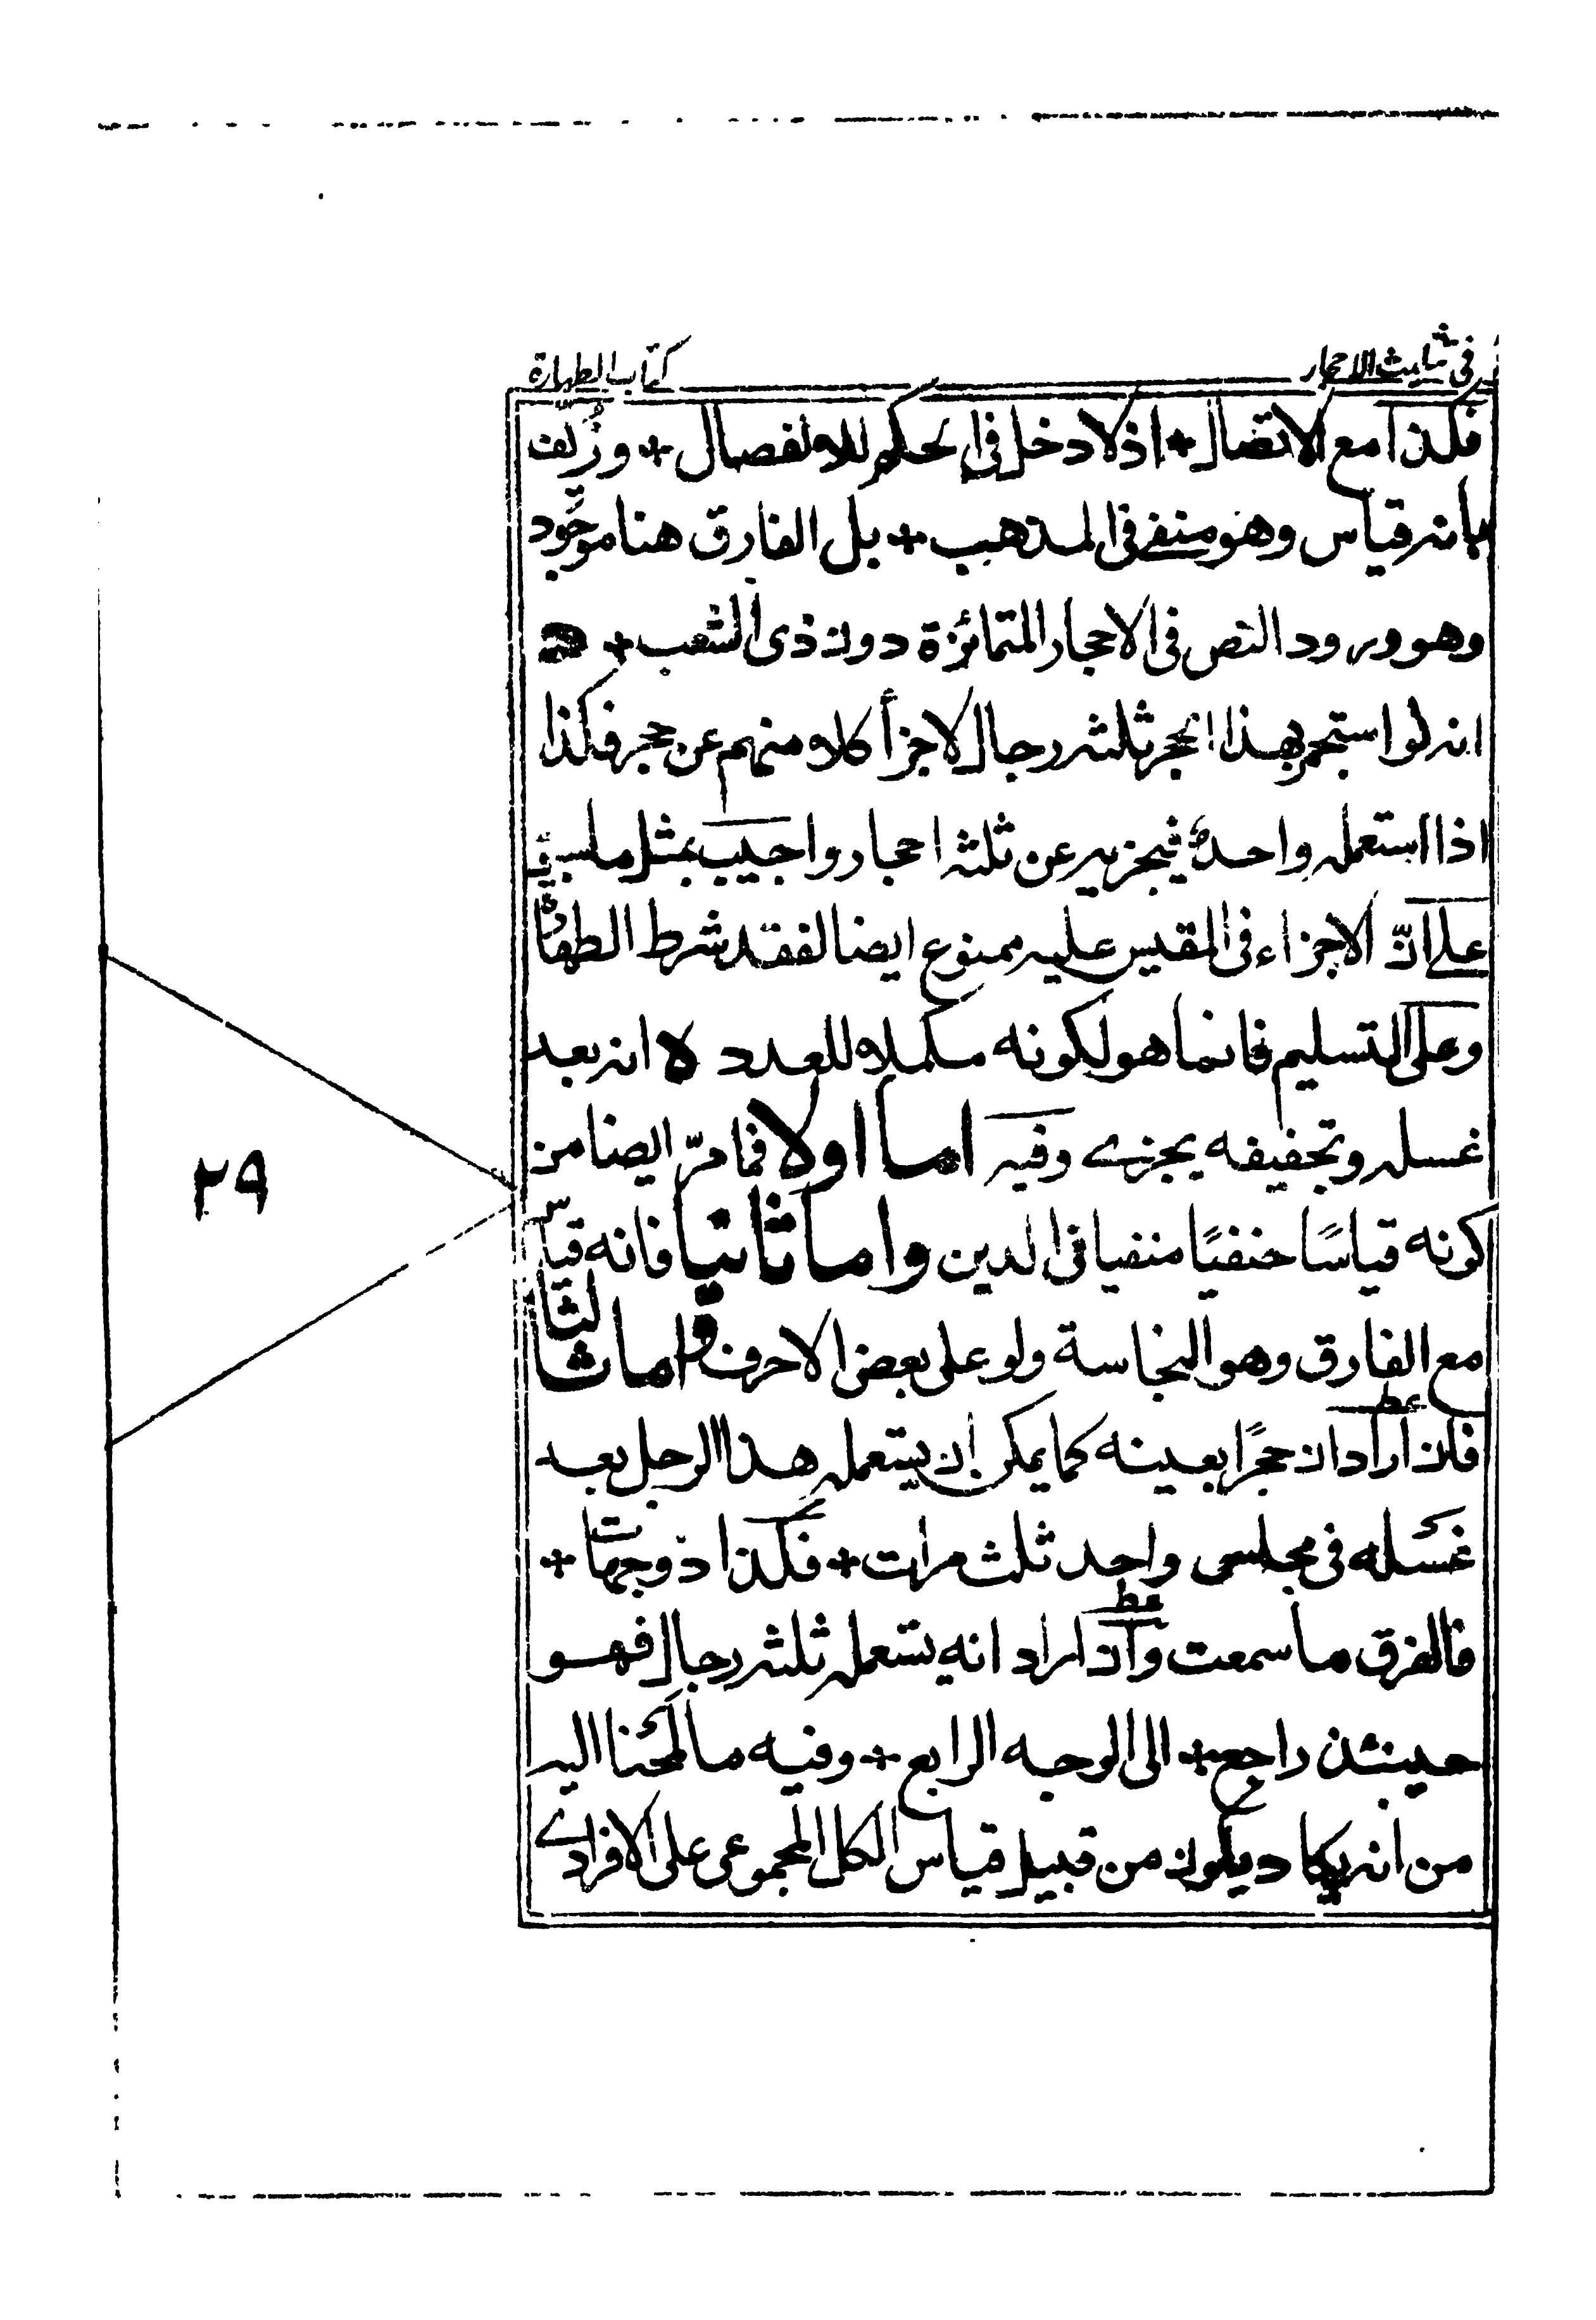 في تثليث الاحجار
كتاب الطهارة
فكذا مع الاتصال + اذ لا دخل في الحكم للانفصال + وزُيّف
بانه قياس وهو منفي في المذهب + بل الفارق هنا موجود
وهو ورود النص في الاحجار المتمائزة دون ذي الشعب + ج
انه لو استجمر بهذا الحجر ثلثه رجال لاجزأ كلا منهم عن حجر فكذا
اذا استعمله واحدٌ فيجزيه عن ثلثه احجار واجيب بمثل ما سبق
على انّ الاجزاء في المقيس عليه ممنوع ايضا لفقد شرط الطهارة
وعلى التسليم فانما هو لكونه مكملا للعدد ه انه بعد
غسله وتجفيفه يجزى وفيه اما اولا فما مرّ ايضا من
كونه قياسًا حنفيًا منفيا في الدين واما ثانيا فانه قياس
مع الفارق وهو النجاسة ولو على بعض الاحرف واما ثالثا
فلان اراد ان حجرًا بعينه كما يمكن ان يستعمله هذا الرجل بعد
غسله في مجلس واحد ثلث مرات + فكذا ذو جهات +
فالفرق ما سمعت وان اراد انه يستعمله ثلثه رجال فهو
حينئذ راجع + الى الوجه الرابع + وفيه ما لمحنا اليه
من انه يكاد يكون من قبيل قياس الكل المجموعى على الافرادى
٢٩